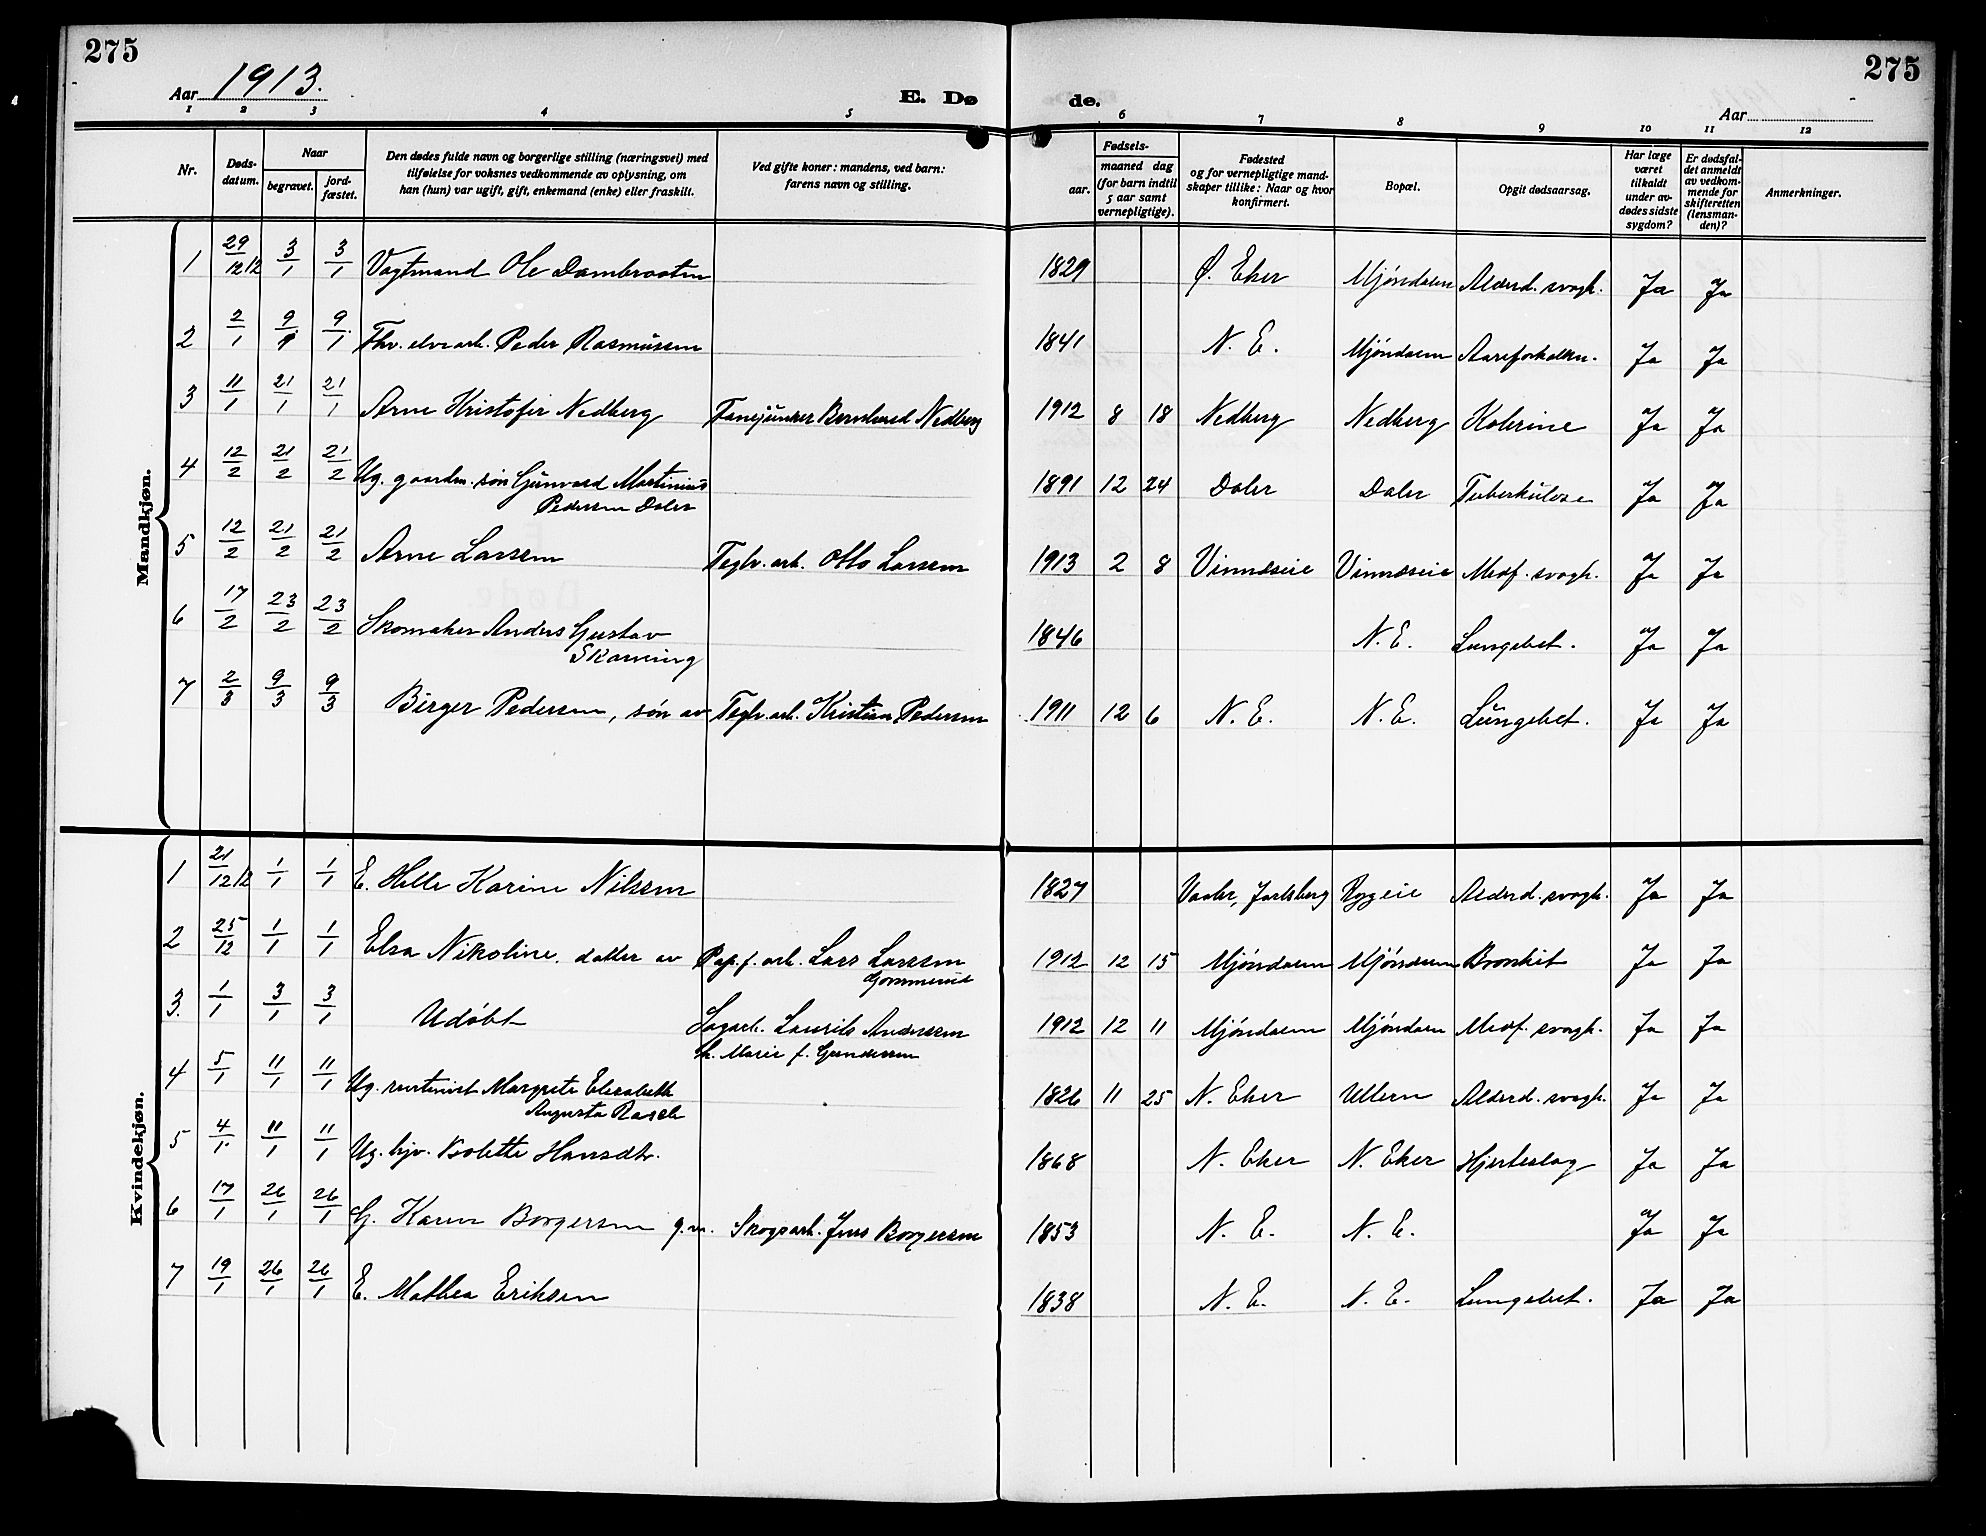 275
275
Aar 1913.
E. Dø
de.
Aar
1 2 3 4 5 6 7 8 9 10 11 12
Nr.
Døds-
datum.
Naar
begravet.
jord-
fæstet.
Den dødes fulde navn og borgerlige stilling (næringsvei) med
tilføielse for voksnes vedkommende av oplysning, om
han (hun) var ugift, gift, enkemand (enke) eller fraskilt.
Ved gifte koner: mandens, ved barn:
farens navn og stilling.
Fødsels-
aar.
maaned dag
(for barn indtil
5 aar samt
vernepligtige).
Fødested
og for vernepligtige mand-
skaper tillike: Naar og hvor
konfirmert.
Bopæl.
Opgit dødsaarsag.
Har læge
været
tilkaldt
under av-
dødes sidste
sygdom?
Er dødsfal-
det anmeldt
av vedkom-
mende for
skifteretten
(lensman-
den)?
Anmerkninger.
Mandkjøn.
1 29/12 12 3/1 3/1 Vagtmand Ole Dambraaten 1829 Ø. Eker Mjøndalen Alderd. svagh. Ja Ja
2 2/1 9/1 9/1 Fhv. elvearb. Peder Rasmussen 1841 N. E. Mjøndalen Aareforkalkn. Ja Ja
3 11/1 21/1 21/1 Arne Kristofer Nedberg Fanejunker Bernhard Nedberg 1912 8 18 Nedberg Nedberg Kolerine Ja Ja
4 12/2 21/2 21/2 Ug. gaardm. søn Gunvald Martinius
Pedersen Daler 1891 12 24 Daler Daler Tuberkulose Ja Ja
5 12/2 21/2 21/2 Arne Larsen Teglv. arb. Otto Larsen 1913 2 8 Vinnæseie Vinnæseie Medf. svagh. Ja Ja
6 17/2 23/2 23/2 Skomaker Anders Gustav
Skarning 1846 N. E. Lungebet. Ja Ja
7 2/3 9/3 9/3 Birger Pedersen, søn av Teglv. arb. Kristian Pedersen 1911 12 6 N. E. N. E. Lungebet. Ja Ja
Kvindekjøn.
1 21/12 12 1/1 1/1 E. Helle Karine Nilsen 1827 Vaaler, Jarlsberg Ryggeie Alderd. svagh. Ja Ja
2 25/12 1/1 1/1 Elsa Nikoline, datter av Pap. f. arb. Lars Larsen
1912 12 15 Mjøndalen Mjøndalen Bronkit Ja Ja
3. 1/1 3/1 3/1 Udøbt Sagarb. Laurits Andersen
h. Marie f. Gundersen 1912 12 11 Mjøndalen Mjøndalen Medf. svagh. Ja Ja
4 5/1 11/1 11/1 Ug. rentenist Margrete Elisabeth
Augusta Rasch 1826 11 25 N. Eker Ullern Alderd. svagh. Ja Ja
5 4/1 11/1 11/1 Ug. hjv. Bolette Hansdtr. 1868 N. Eker N. Eker Hjerteslag Ja Ja
6 17/1 26/1 26/1 G. Karen Borgersen g. m. Skogsarb. Jens Borgersen 1853 N. E. N. E. Ja Ja
7 19/1 26/1 26/1 E. Mathea Eriksen 1838 N. E. N. E. Lungebet. Ja Ja